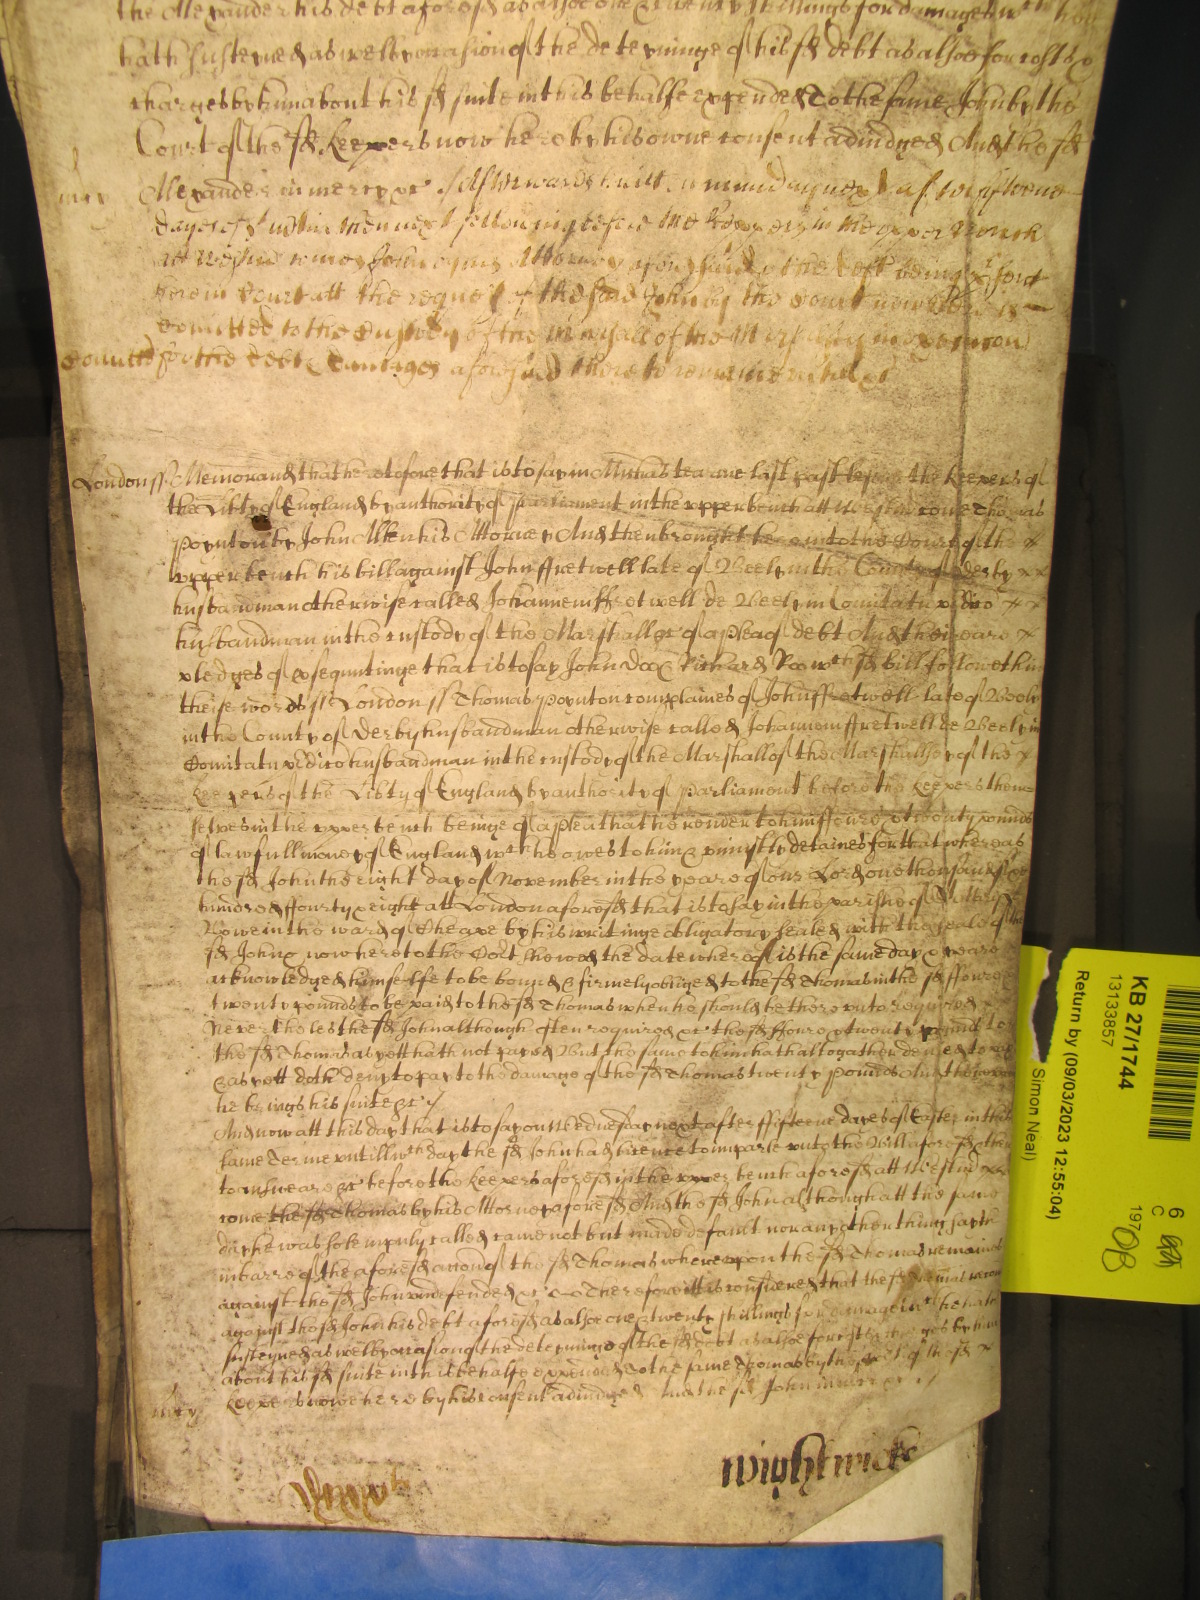 the Alexander his debt aforesd as alsoe one & twenty shillings for damages wch hee
hath susteyned as well by occasion of the deteyninge of his sd debt as alsoe for costs &
charges by him about his sd suite in this behalfe expended To the same John by the
Court of the sd Keepers now here by his owne consent adiudged And the sd
mcy
Alexander in mercy &c // Afterwards
att Westmr came John aforesaid & the deft being present
here in Court att the request of the said John by the Court now here is
comitted to the Custody of the Marshall of the
Comitt for the debt & damages aforesaid there to remaine untill &c
London ss Memorand that heretofore that is to say in Michas tearme last past before the Keepers of
the Libty of England by authority of Parliament in the upper bench att Westmr came Thomas
Poynton by John Allen his Attorney And then brought here into the Court of the
upper bench his bill against John ffretwell late of Beely in the County of Derby
husbandman otherwise called Johannem ffretwell de Beely in Comitatu pdico
husbandman in the custody of the Marshall &c of a plea of debt And there are
pledges of psequutinge that is to say John Doo & Richard Roo wch sd bill followeth in
theise words ss London ss Thomas Poynton complaines of John ffretwell late of Beely
in the County of Derby husbandman otherwise called Johannem ffretwell de Beely in
Comitatu pdico husbandman in the custody of the Marshall of the Marshalsey of the
Keepers of the Libty of England by authority of Parliament before the Keepers them
selves in the upper bench beinge of a plea that he render to him ffoure & twenty pounds
of lawfull money of England wch he owes to him & uniustly detaines for that whereas
the sd John the eight day of November in the yeare of our Lord one thousand six
hundred ffourty & eight att London aforesd that is to say in the parishe of
Bowe in the ward of Cheape by his writinge obligatory sealed with the seale of the
sd John & now here to the Cort shewed the date whereof is the same day & yeare
acknowledged himselfe to be bound & firmely obliged to the sd Thomas in the sd ffoure &
twenty pounds to be paid to the sd Thomas when he should be thereunto required
Neverthelesthe sd John although often required &c the sd ffoure & twenty pounds to
the sd Thomas as yett hath not payed But the same to him hath altogather denied to pay
& as yett doth deny to pay to the damage of the sd Thomas twenty pounds And thereupon
he brings his suite &c //
And now att this day that is to say on Wednesday next after ffifteene dayes of Easter in this
same Terme untill wch day the sd John had licence to imparle unto the Bill aforesd & then
to answeare &c before the Keepers aforesd in the upper bench aforesd att Westmr
come the sd Thomas by his Attorney aforesd And the sd John although att the same
day he was solempnly called came not but made default nor any other thing sayth
in barre of the aforesd accon of the sd Thomas whereupon the sd Thomas remaines
against the sd John undefended &c Therefore itt is considered that the sd Thomas recover
against the sd John his debt aforesd as alsoe one & twenty shillings for damages wch he hath
susteyned as well by occasion of the deteyninge of the sd debt as alsoe for costs & charges by him
about his sd suite in this behalfe expended To the same Thomas by the Court of the sd
Keepers nowe here by his consent adiudged And the sd John in mercy &c //
mcy
Wightwick
KB 27/1744
13133857
Return by (09/03/2023 12:55:04)
Simon Neal)
6
C
197